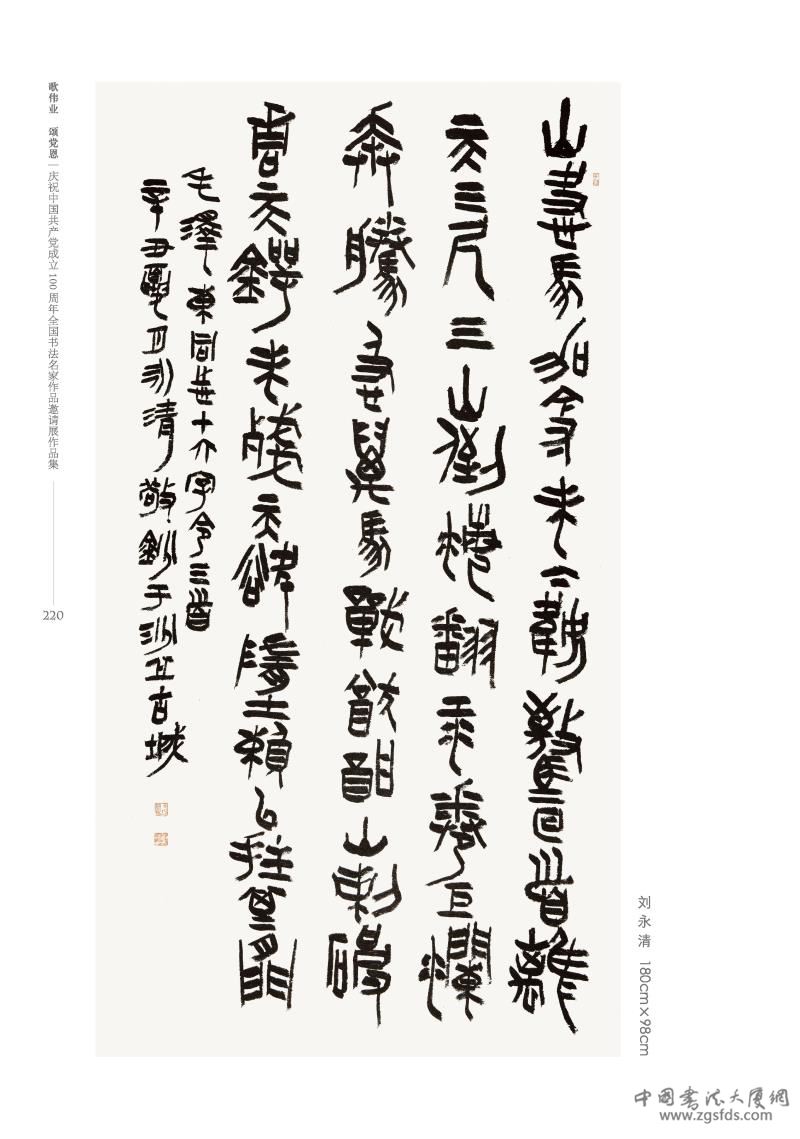 歌伟业 颂党恩｜庆祝中国共产党成立100周年全国书法名家作品邀请展作品集
220
山快馬加鞭未下鞍驚回首離
天三尺三山倒海翻江捲巨瀾
奔騰急萬馬戰猶酣山刺破
青天鍔未殘天欲墮賴以拄其間
毛澤東同志十六字令三首
辛丑夏月永清敬鈔于沙丘古城
刘永清 180cm×98cm
中国书法大厦网
www.zgsfds.com